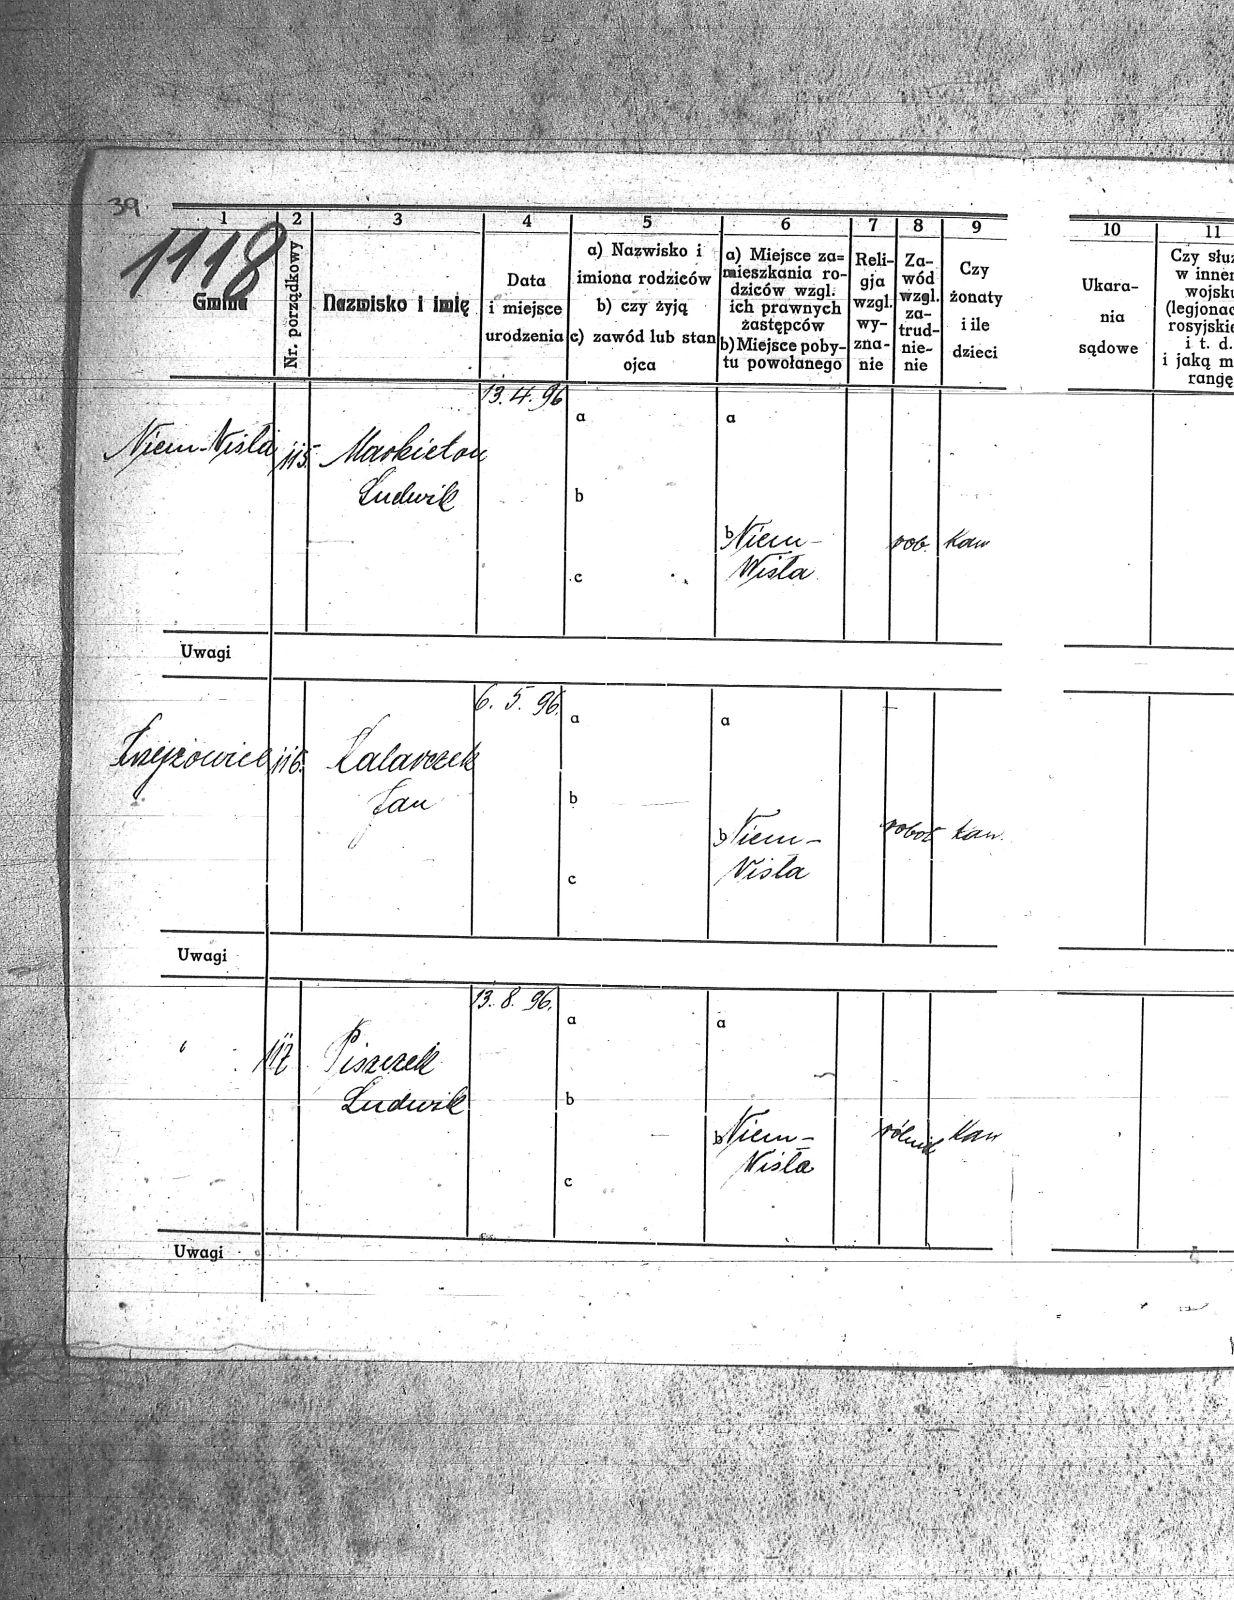 39.
1118
1 2 3 4 5 6 7 8 9 10 11
Gmina
Nr. porządkowy
Nazwisko i imię
Data
i miejsce
urodzenia
a) Nazwisko i
imiona rodziców
b) czy żyją
c) zawód lub stan
ojca
a) Miejsce za=
mieszkania ro-
dziców wzgl.
ich prawnych
zastępców
b) Miejsce poby-
tu powołanego
Reli-
gja
wzgl.
wy-
zna-
nie
Za-
wód
wzgl.
za-
trud-
nie-
nie
Czy
żonaty
i ile
dzieci
Ukara-
nia
sądowe
Czy słu
w inne
wojsku
(legjonac
rosyjskie
i t. d.
i jaką m
rangę
13.4.96
Niem-Wisła 115. Markieton
Ludwik
a
b
c
a
b Niem-
Wisła
rob. kaw
Uwagi
6. 5. 96.
116. Kalarczek
Jan
a
b
c
a
b Niem-
Wisla
robot kaw.
Uwagi
13. 8. 96.
" 117 Piszczek
Ludwik
a
b
c
a
b Niem-
Wisla
rólnik kaw
Uwagi